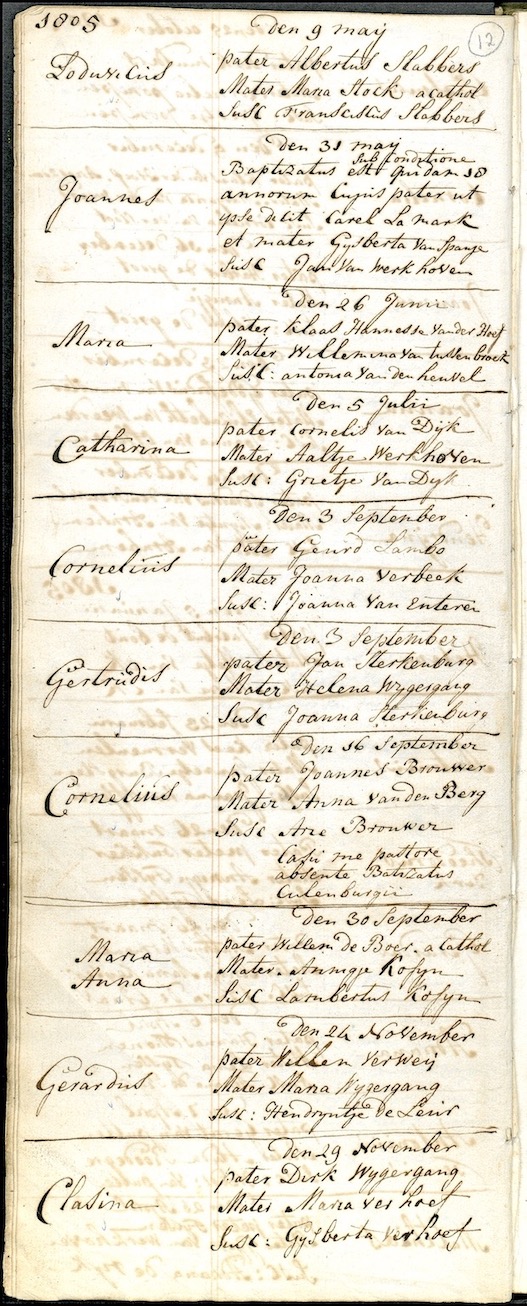 1805
12
Den 9 maij
Loduvicus
pater Albertus Slabbers
Mater Maria Stock acathol
Susc Franssiscus Slabbers
Den 31 maij
sub conditione
Baptizatus est quidam 18
Joannes
annorum Cujus pater ut
ipse dicit Carel La mark
et mater Gysberta van Spange
Susc Jan van Werkhoven
Den 26 Junii
pater Klaas Hannesse van der Hoef
Maria
Mater Willemina van tussenbroek
Susc: antonia van den heuvel
Den 5 Julii
pater Cornelis van Dijk
Catharina
Mater Aaltje Werkhoven
Susc: Grietje van Dyk
Den 3 September
pater Geurd Lambo
Cornelius
Mater Joanna Verbeek
Susc: Joanna van Enteren
Den 3 September
pater Jan Sterkenburg
Gertrudis
Mater Helena Wygergang
Susc Joanna Sterkenburg
Den 16 September
pater Joannes Brouwer
Cornelius
Mater Anna van den Berg
Susc Arie Brouwer
Casu me pastore
absente Batizatus
Culenburgii
Den 30 September
pater Willem de Boer. acathol
Maria
Mater. Annigje Kosyn
Anna
Susc Lambertus Kosyn
Den 24 November
pater Willem Verweij
Gerardus
Mater Maria Wygergang
Susc: Hendryntje de Leur
Den 29 November
pater Dirk Wygergang
Clasina
Mater Maria Verhoef
Susc: Gysberta Verhoef